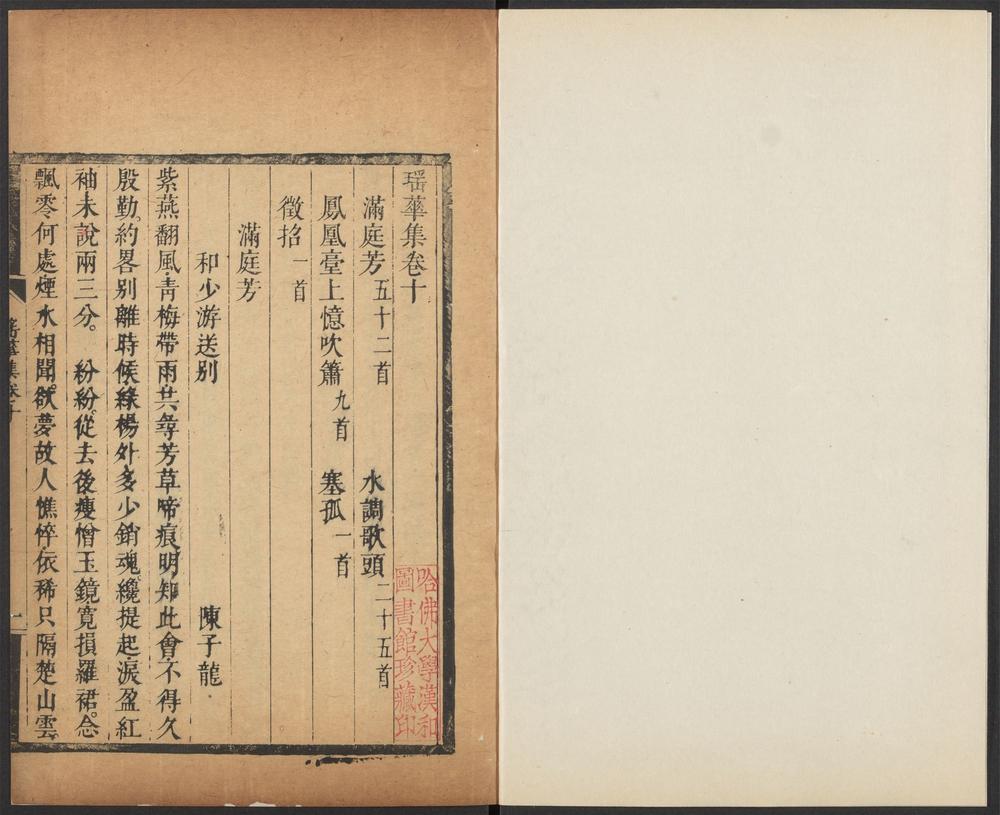 瑶華集卷十
滿庭芳五十二首 水調歌頭二十五首
鳳凰臺上憶吹簫九首 塞孤一首
徵招一首
滿庭芳
和少游送别 陳子龍
紫燕翻風青梅帶雨共尋芳草啼痕明知此會不得久
殷勤。約畧别離時候綠楊外多少銷魂纔提起淚盈紅
袖未說兩三分。 紛紛從去後瘦憎玉鏡寛損羅裙。念
飄零何處煙水相聞。欲夢故人憔悴依稀只隔楚山雲
瑶華集卷十
一
哈佛大學漢和
圖書館珍藏印